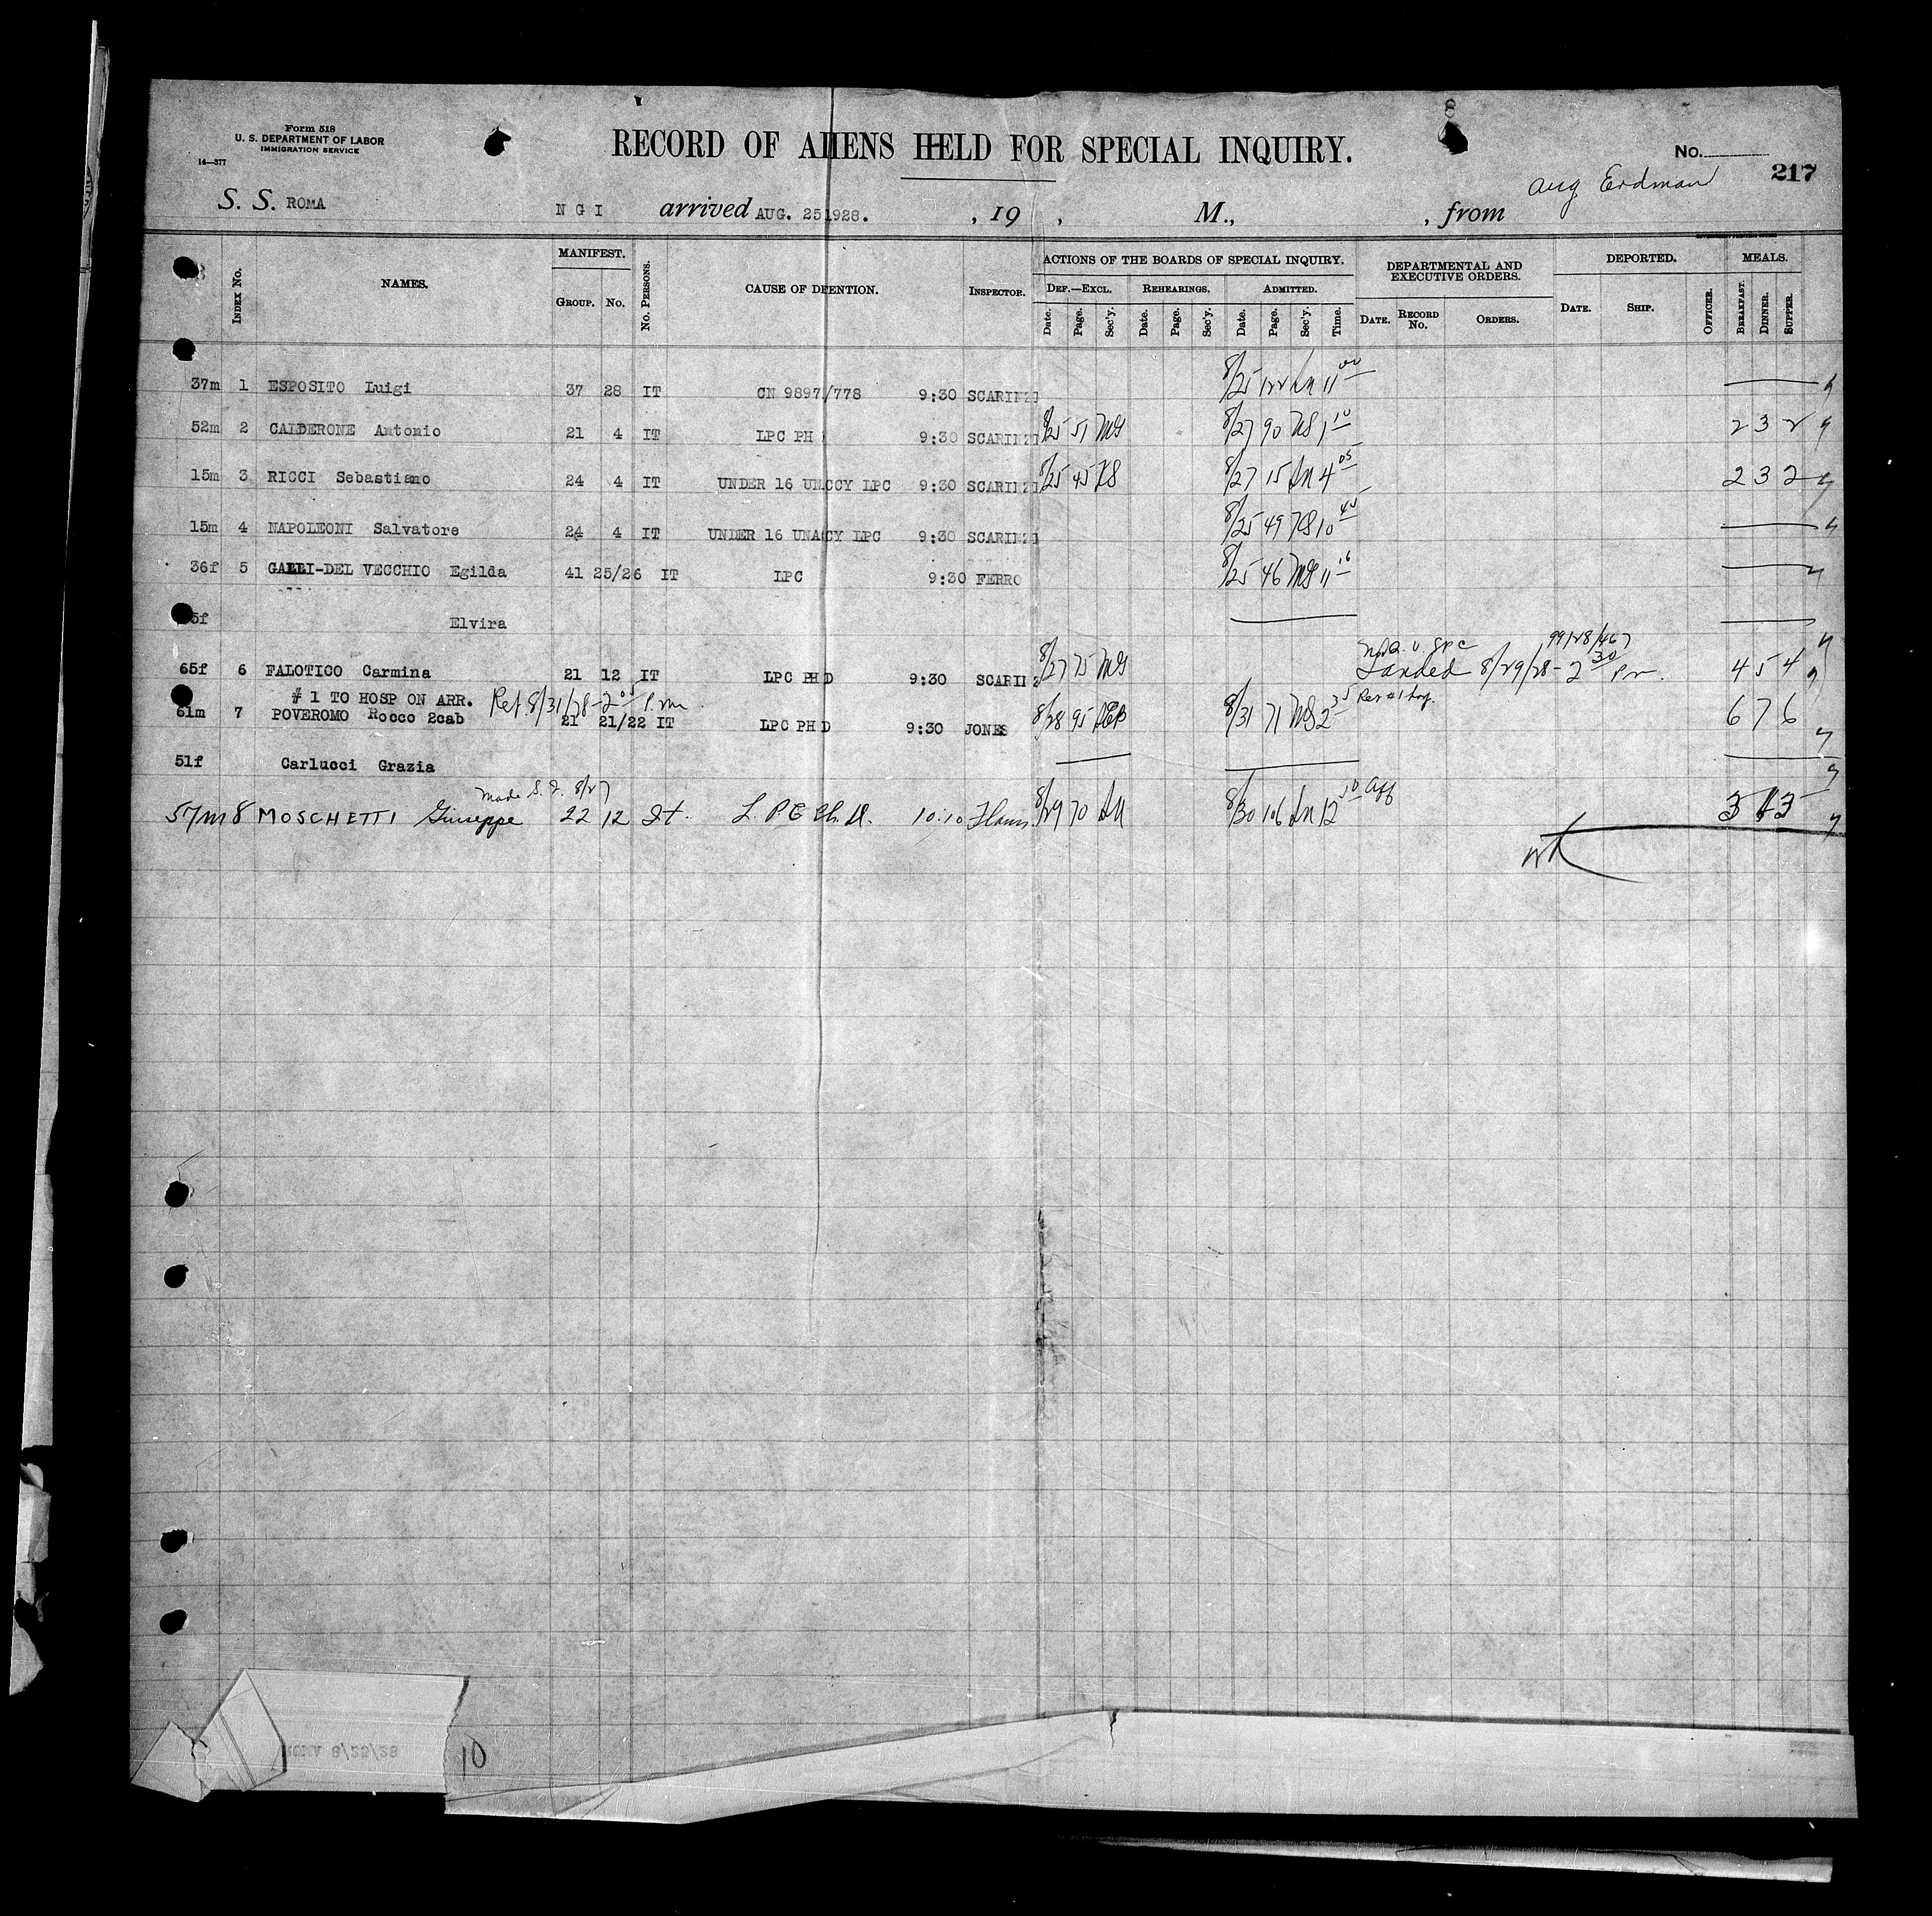 Form 518
U. S. DEPARTMENT OF LABOR
IMMIGRATION SERVICE
14—377
RECORD OF ALIENS HELD FOR SPECIAL INQUIRY.
No.
217
Aug Erdman
S. S. ROMA N G I arrived AUG. 25 1928. , 19 , M., , from
INDEX No. NAMES. MANIFEST. GROUP. No. No. PERSONS. CAUSE OF DETENTION. INSPECTOR. ACTIONS OF THE BOARDS OF SPECIAL INQUIRY. DEPARTMENTAL AND EXECUTIVE ORDERS. DEPORTED. MEALS.
DEF.—EXCL. REHEARINGS. ADMITTED.
Date. Page. Sec'y. Date. Page. Sec'y. Date. Page. Sec'y. Time. DATE. RECORD No. ORDERS. DATE. SHIP. OFFICER. BREAKFAST. DINNER. SUPPER.
37m 1 ESPOSITO Luigi 37 28 IT CN 9897/778 9:30 SCARINZI 8/25 122 11 00
52m 2 CALDERONE Antonio 21 4 IT LPC PH 9:30 SCARINZI 8/25 51 MG 8/27 90 NS 1 10 2 3 2
15m 3 RICCI Sebastiano 24 4 IT UNDER 16 UNCCY LPC 9:30 SCARINZI 8/25 45 8/27 15 4 05 2 3 2
15m 4 NAPOLEONI Salvatore 24 4 IT UNDER 16 UNACY LPC 9:30 SCARINZI 8/25 49 10 40
36f 5 GALLI-DEL VECCHIO Egilda 41 25/26 IT LPC 9:30 FERRO 8/25 46 MG 11 10
5f Elvira
99128/467
65f 6 FALOTICO Carmina 21 12 IT LPC PH D 9:30 SCARIN 8/27 75 MG Landed 8/29/28 - 2 30 P.m. 4 5 4
# 1 TO HOSP ON ARR. Ret 8/31/28 - 2 05 P.m.
61m 7 POVEROMO Rocco 2cab 21 21/22 IT LPC PH D 9:30 JONES 8/28 95 8/31 71 NS 2 35 6 7 6
51f Carlucci Grazia
Made S. I. 8/27
57m 8 MOSCHETTI Giuseppe 22 12 It. L. P. C Ph. D. 10:10 8/29 70 8/30 106 12 10 aff 3 3
ROMA 8/25/28
10